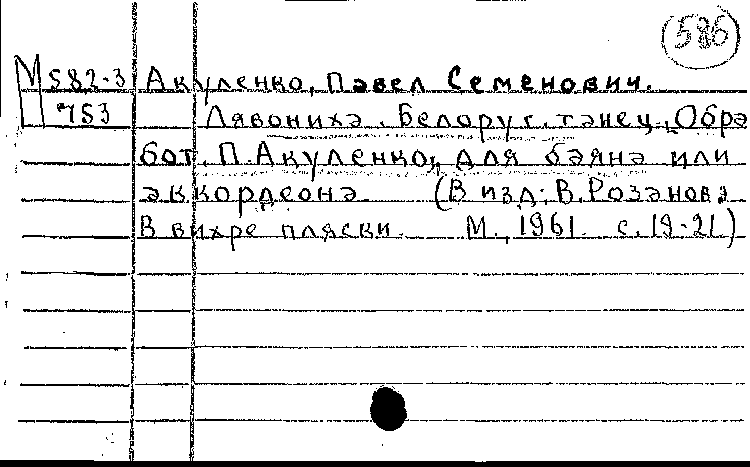 586
М 582-3 Акуленко, Павел Семенович.
753 Лявониха. Белорус. танец. Обра
бот. П. Акуленко, для баяна или
аккордеона (В изд: В. Розанова
В вихре пляски. М., 1961. с. 19-21)